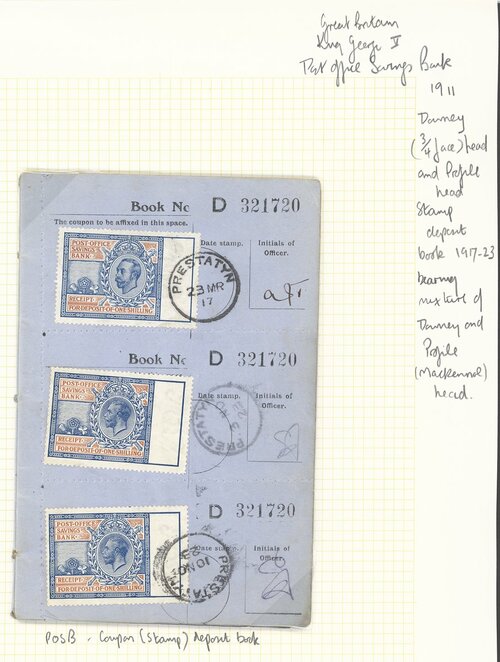 Great Britain
King George V
Post Office Savings Bank
1911
Downey
(3/4 face) head
and Profile
head
Stamp
deposit
book 1917-23
bearing
mixture of
Downey and
Profile
(Mackennal)
head.
Book No D 321720
The coupon to be affixed in this space.
Date stamp.
Initials of
Officer.
POST·OFFICE
SAVINGS
BANK·
RECEIPT·
FOR·DEPOSIT·OF·ONE·SHILLING
PRESTATYN
23 MR
17
Book No D 321720
Date stamp.
Initials of
Officer.
POST·OFFICE
SAVINGS
BANK·
RECEIPT·
FOR·DEPOSIT·OF·ONE·SHILLING
PRESTATYN
D 321720
Date stamp.
Initials of
Officer.
POST·OFFICE
SAVINGS
BANK·
RECEIPT·
FOR·DEPOSIT·OF·ONE·SHILLING
PRESTATYN
10 NO
23
POSB - Coupon (Stamp) deposit book